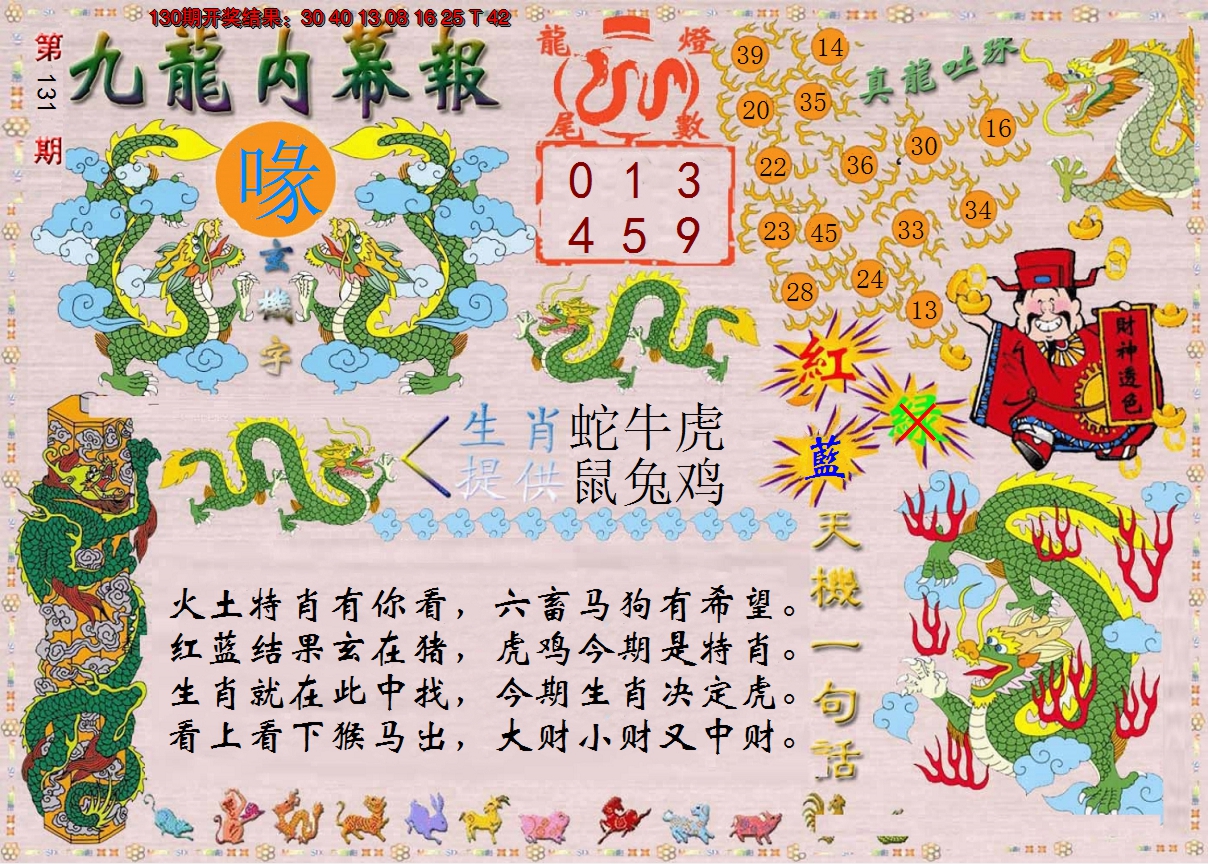 130期开奖结果：30 40 13 08 16 25 T 42
第131期
九龍内幕報
喙
玄機字
龍燈尾數
0 1 3
4 5 9
真龍吐珠
39 14
20 35
22 36 30 16
23 45 33 34
28 24 13
紅
绿
藍
財神透色
生肖提供
蛇牛虎
鼠兔鸡
天機一句話
火土特肖有你看，六畜马狗有希望。
红蓝结果玄在猪，虎鸡今期是特肖。
生肖就在此中找，今期生肖决定虎。
看上看下猴马出，大财小财又中财。